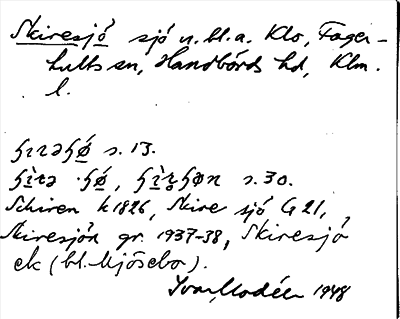 Skiresjö sjö n. bl. a. Klo, Fager-
hults sn, Handbörds hd, Klm.
l.
s. 13.
s. 30.
Schiren k 1826, Skire sjö G 21,
Skiresjön gr. 1937-38, Skiresjö
ek (bl. Mjösebo).
Ivar Modéer 1948